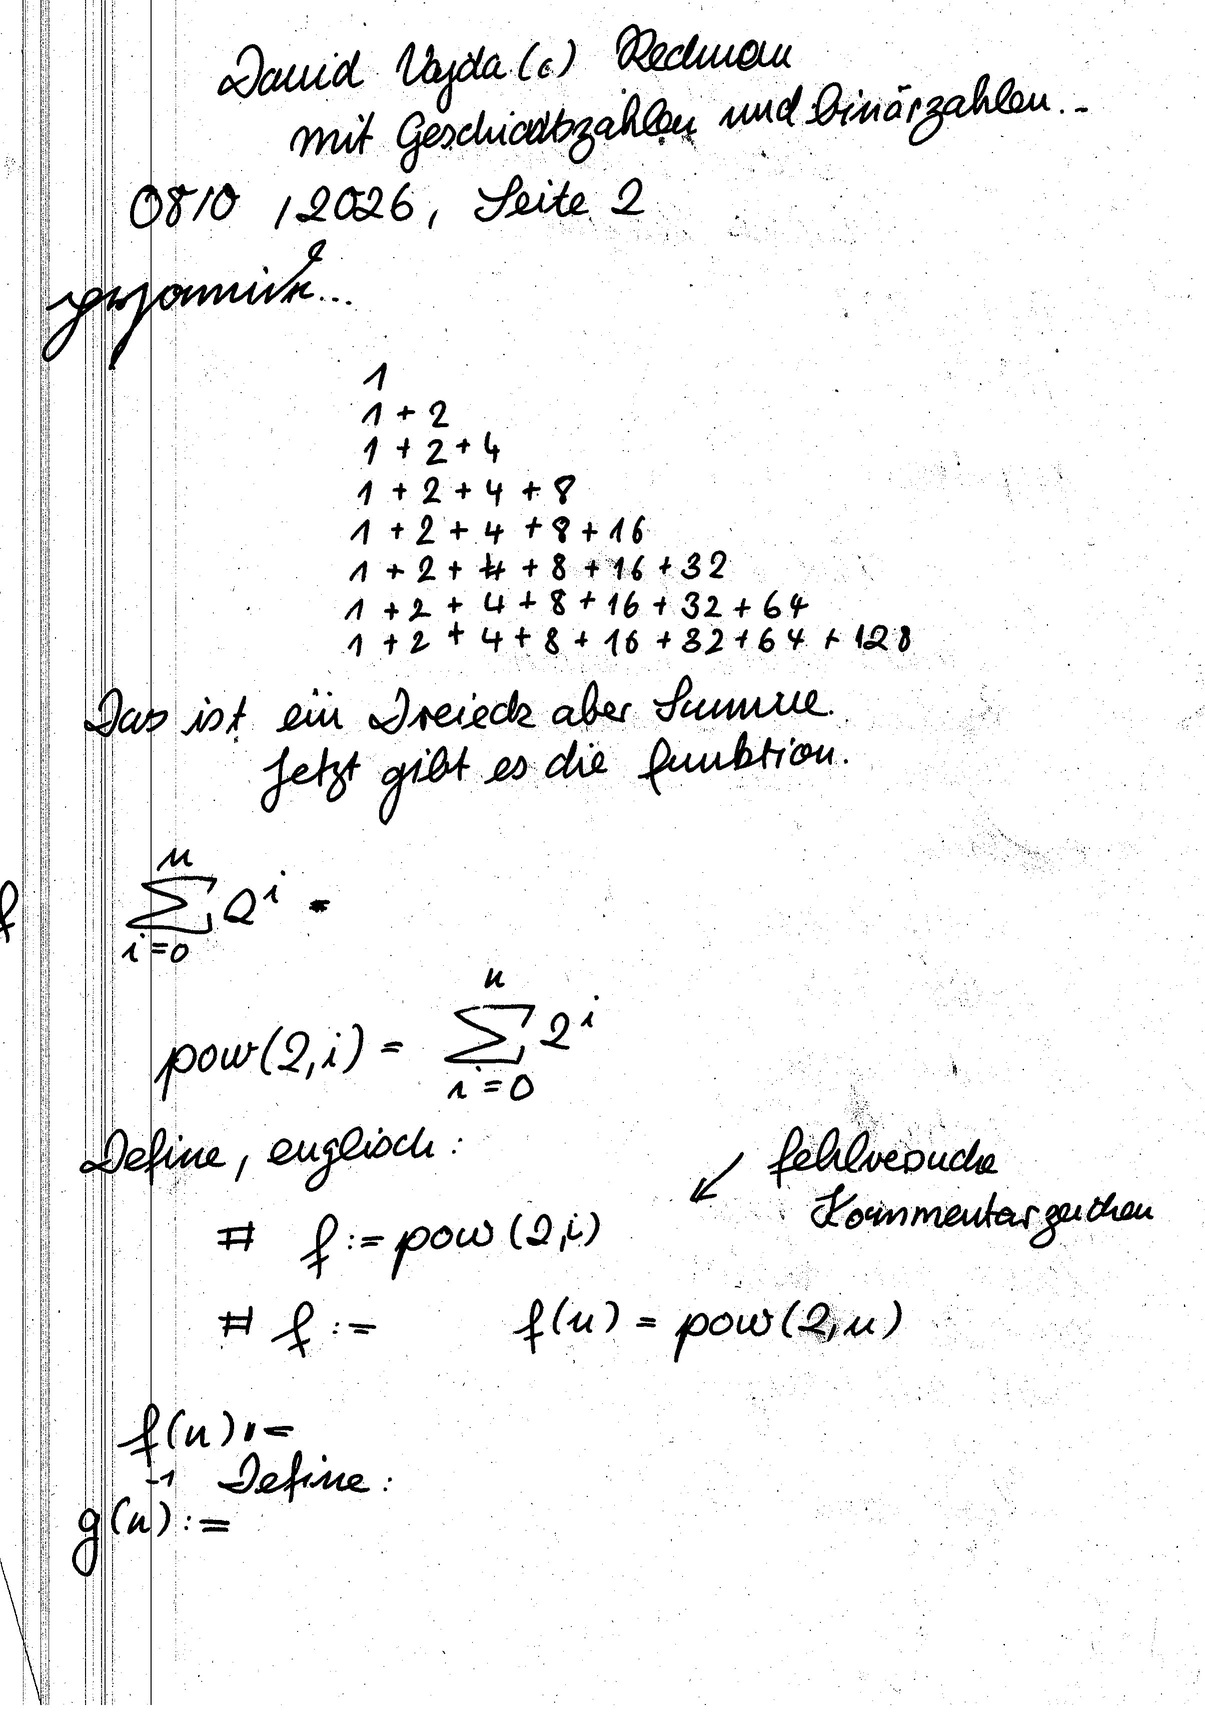 David Vajda (c) Rechnen
mit Geschichtszahlen und binärzahlen..
08/0 , 2026, Seite 2
1
1 + 2
1 + 2 + 4
1 + 2 + 4 + 8
1 + 2 + 4 + 8 + 16
1 + 2 + 4 + 8 + 16 + 32
1 + 2 + 4 + 8 + 16 + 32 + 64
1 + 2 + 4 + 8 + 16 + 32 + 64 + 128
Das ist ein Dreieck aber Summe.
Jetzt gibt es die funktion.
f
n
∑ 2^i =
i=0
n
pow(2,i) = ∑ 2^i
i=0
Define, englisch:
fehlvesuche
Kommentarzeichen
# f := pow(2,i)
# f := f(n) = pow(2,n)
f(n) :=
-1 Define:
g(n) :=